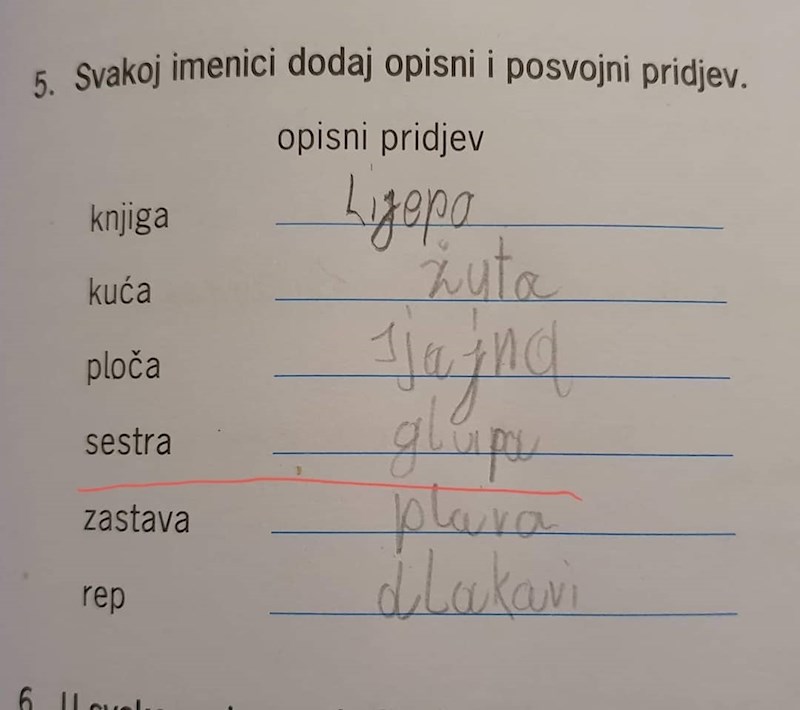 5. Svakoj imenici dodaj opisni i posvojni pridjev.
opisni pridjev
knjiga Lijepa
kuća žuta
ploča sjajna
sestra glupa
zastava plava
rep dlakavi
6. U